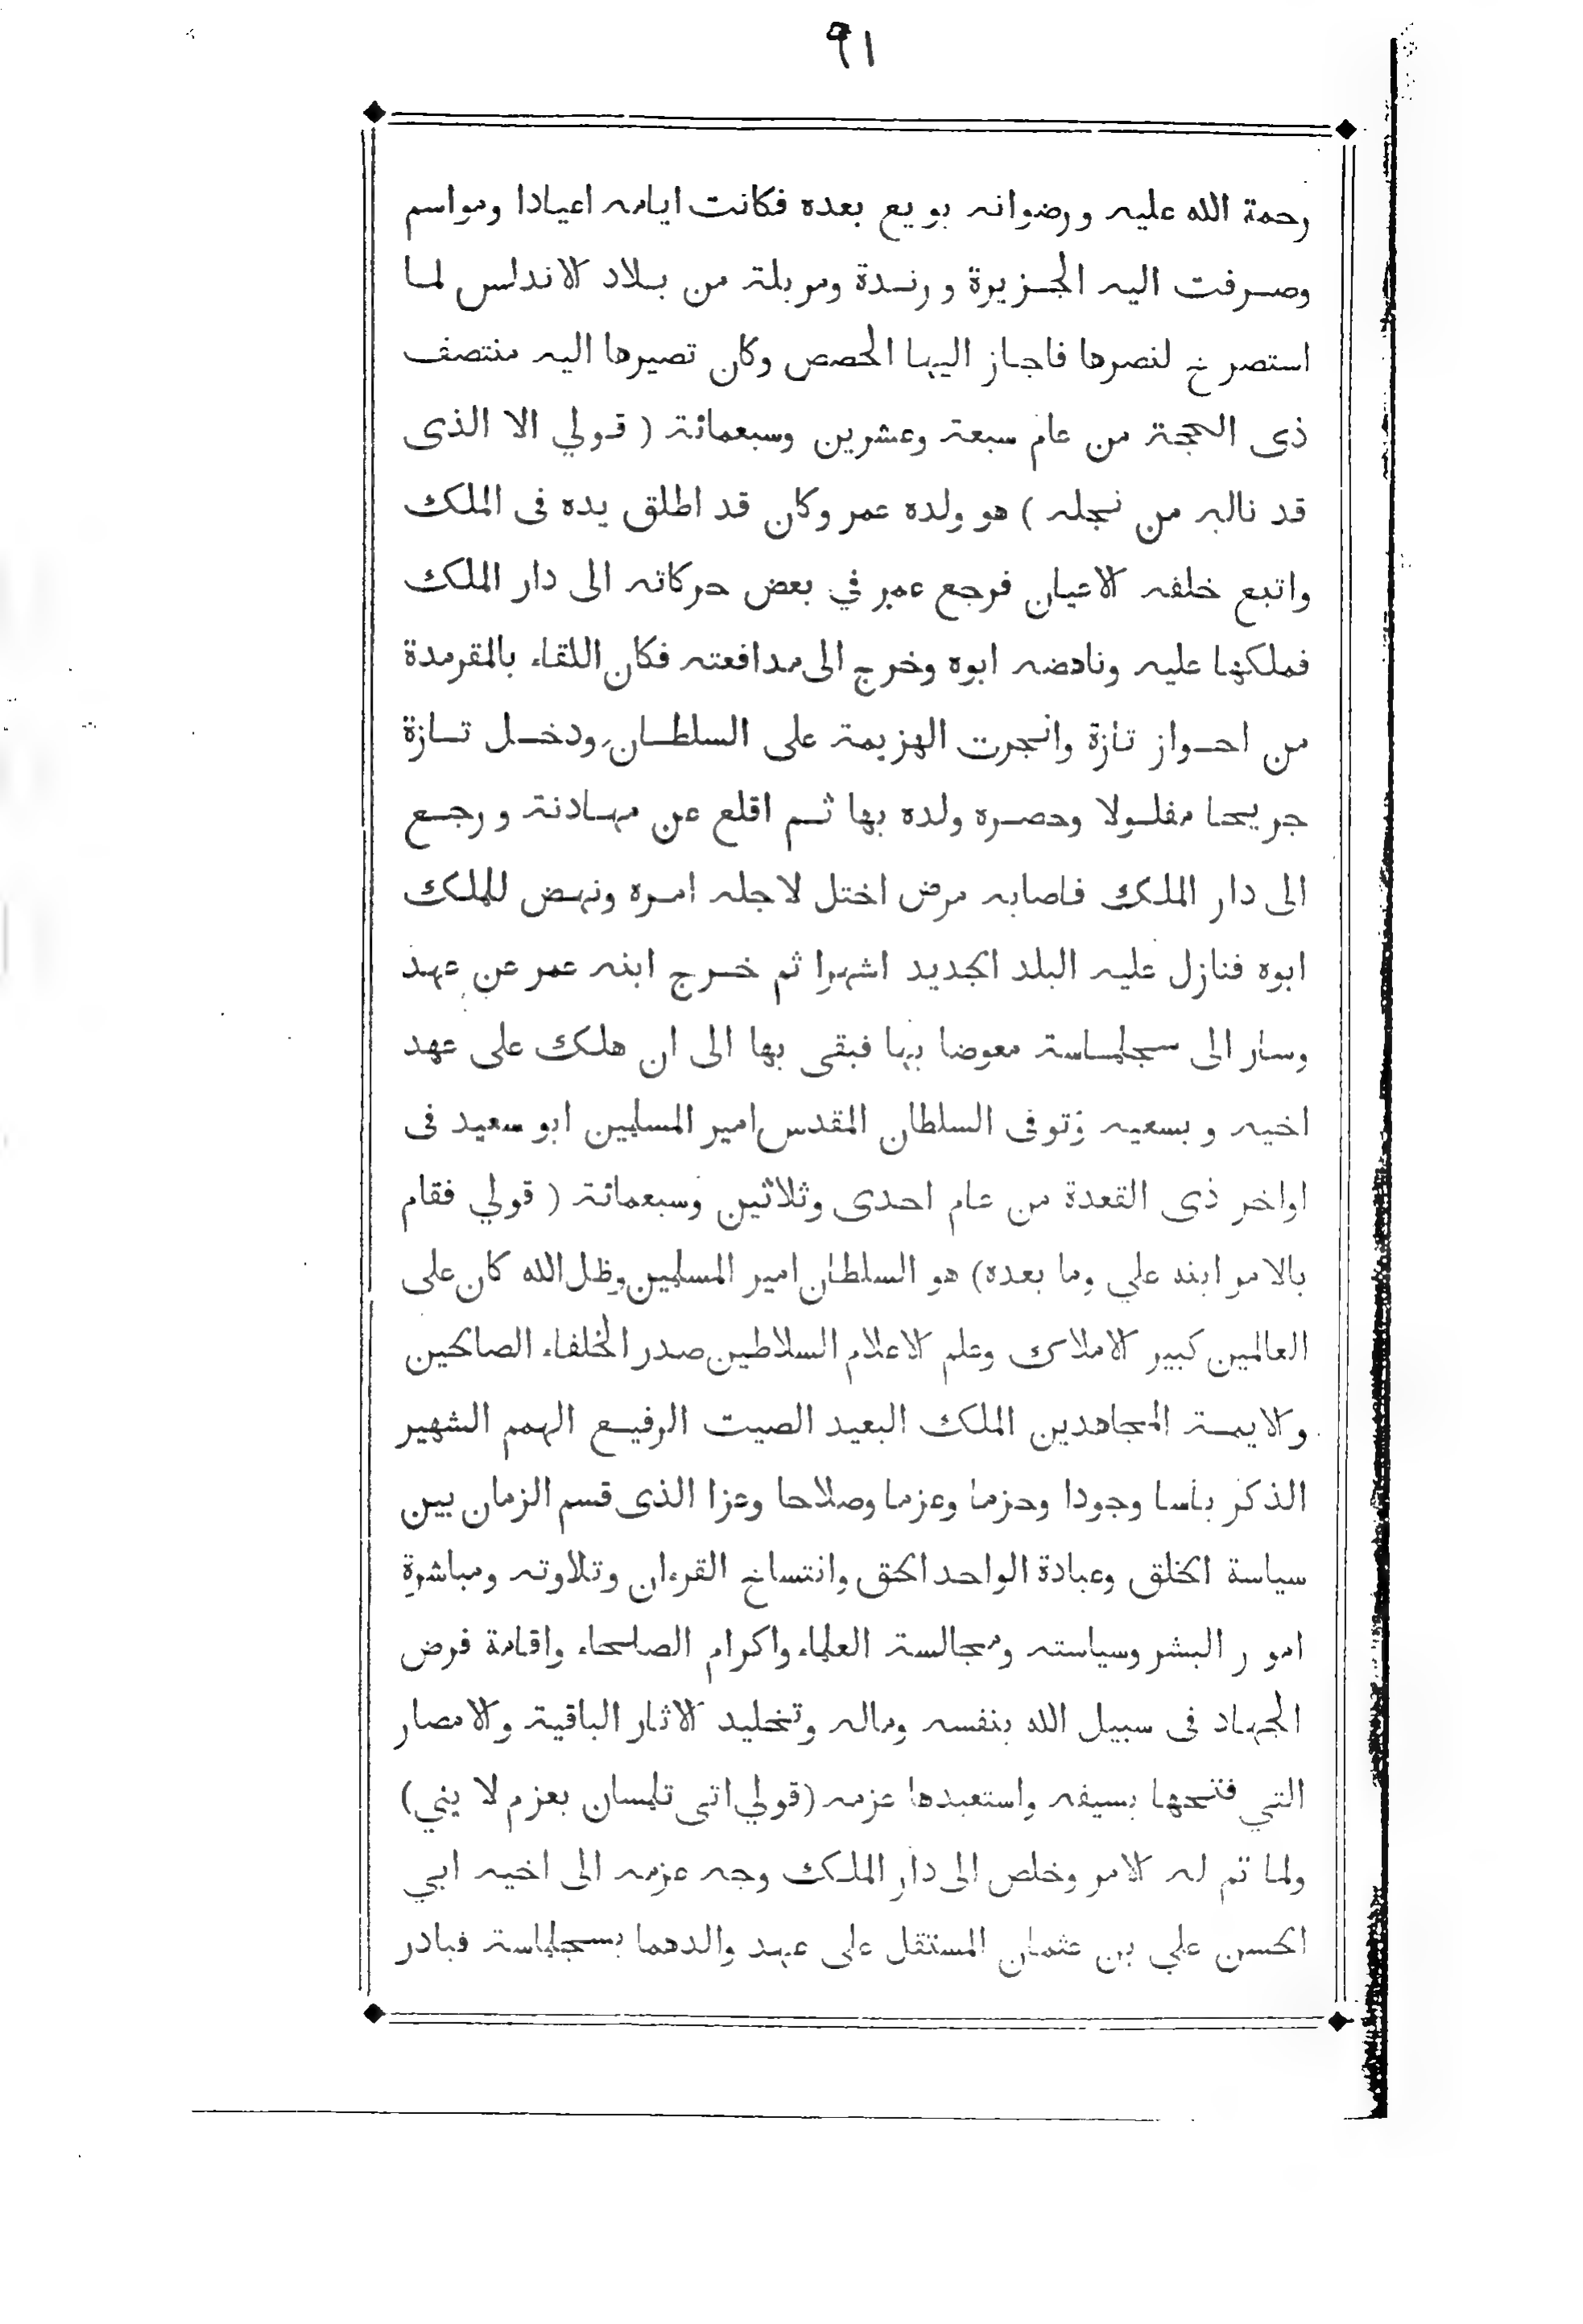 ٩١
رحمة الله عليه ورضوانه بويع بعده فكانت ايامه اعيادا ومواسم
وصرفت اليه الجزيرة ورندة ومربلة من بلاد الاندلس لما
استصرخ لنصرها فاجاز اليها الحصص وكان تصيرها اليه منتصف
ذى الحجة من عام سبعة وعشرين وسبعمائة ( قولي الا الذى
قد ناله من نجله ) هو ولده عمر وكان قد اطلق يده فى الملك
واتبع خلفه الاعيان فرجع عمر في بعض حركاته الى دار الملك
فملكها عليه وناهضه ابوه وخرج الى مدافعته فكان اللقاء بالمقرمدة
من احواز تازة وانجرت الهزيمة على السلطان ودخل تازة
جريحا مفلولا وحصره ولده بها ثم اقلع عن مهادنة ورجع
الى دار الملك فاصابه مرض اختل لاجله امره ونهض للملك
ابوه فنازل عليه البلد الجديد اشهرا ثم خرج ابنه عمر عن عهد
وسار الى سجلماسة معوضا بها فبقى بها الى ان هلك على عهد
اخيه وبسعيه وتوفى السلطان المقدس امير المسلمين ابو سعيد فى
اواخر ذى القعدة من عام احدى وثلاثين وسبعمائة ( قولي فقام
بالامر ابنه علي وما بعده) هو السلطان امير المسلمين وظل الله كان على
العالمين كبير الاملاك وعلم الاعلام السلاطين صدر الخلفاء الصالحين
والايمة المجاهدين الملك البعيد الصيت الرفيع الهمم الشهير
الذكر باسا وجودا وحزما وعزما وصلاحا وعزا الذى قسم الزمان بين
سياسة الخلق وعبادة الواحد الحق وانتساخ القرءان وتلاوته ومباشرة
امور البشر وسياسته ومجالسة العلماء واكرام الصلحاء واقامة فرض
الجهاد فى سبيل الله بنفسه وماله وتخليد الاثار الباقية والامصار
التي فتحها بسيفه واستعبدها عزمه (قولي اتى تلمسان بعزم لا يني)
ولما تم له الامر وخلص الى دار الملك وجه عزمه الى اخيه ابي
الحسن علي بن عثمان المستقل على عهد والدهما بسجلماسة فبادر